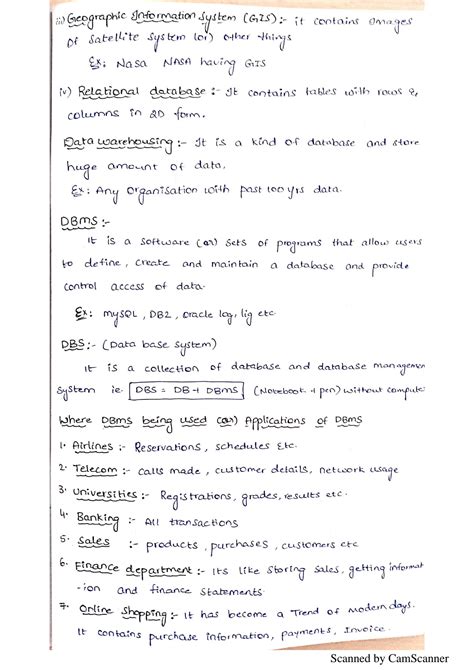 iii) Geographic Information System (GIS) :- it contains Images
of Satellite System (or) other things
Ex: Nasa NASA having GIS
iv) Relational database :- It contains tables with rows &
columns in 2D form.
Data warehousing :- It is a kind of database and store
huge amount of data.
Ex: Any Organisation with past 100 yrs data.
DBMS :-
It is a software (or) sets of programs that allow users
to define, create and maintain a database and provide
control access of data.
Ex: mySQL, DB2, oracle log, lig etc
DBS :- (Data base System)
It is a collection of database and database managemen
System ie. DBS = DB + DBMS (Notebook + pen) without compute
Where DBMS being used (or) Applications of DBMS
1. Airlines :- Reservations, schedules Etc.
2. Telecom :- calls made, customer details, network usage
3. Universities :- Registrations, grades, results etc.
4. Banking :- All transactions
5. Sales :- products, purchases, customers etc
6. Finance department :- Its like Storing Sales, getting informat
-ion and finance statements.
7. Online Shopping :- It has become a Trend of modern days.
It contains purchase information, payments, Invoice.
Scanned by CamScanner